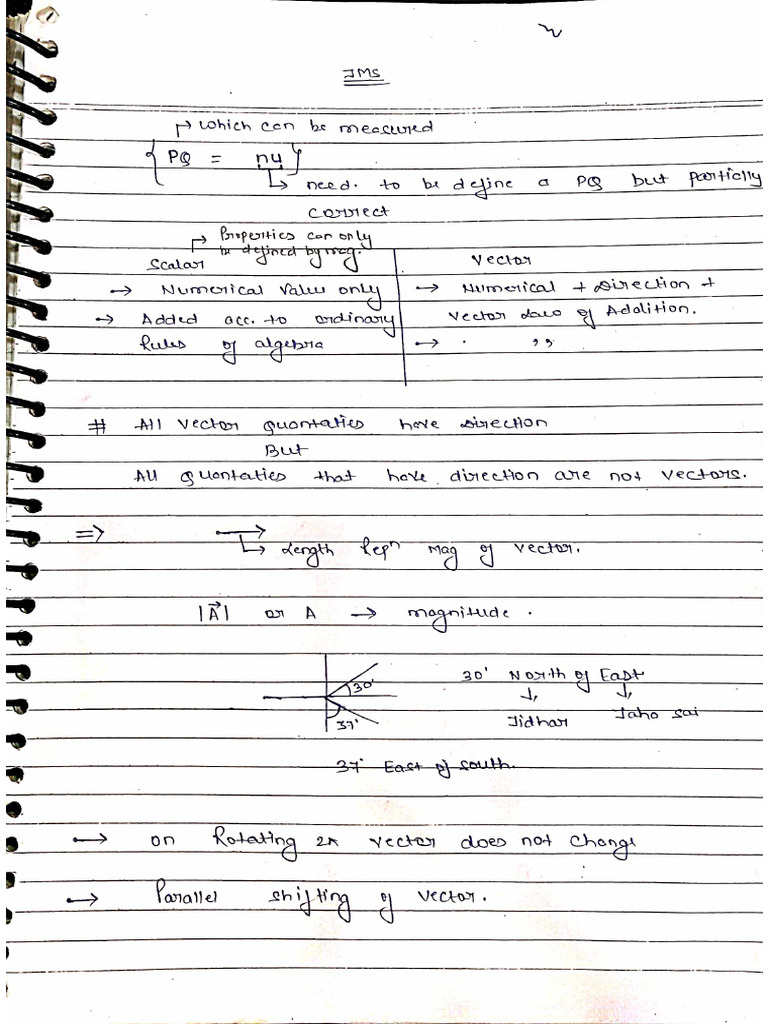 JMS
↱ which can be measured
{ PQ = nu }
↳ need. to be define a PQ but partially
correct
↱ Properties can only
be defined by mag.
Scalar
Vector
→ Numerical Value only
→ Numerical + Direction +
→ Added acc. to ordinary
Vector Law of Addition.
Rules of algebra
→ . ,,
# All Vector quantaties have Direction
But
All quantaties that have direction are not vectors.
⇒ →
↳ Length Repⁿ Mag of vector.
|A⃗| or A → magnitude.
30° North of East
↓ ↓
Jidhar Jaha sai
30°
37°
37° East of South.
→ on Rotating 2π vector does not change
→ Parallel shifting of vector.